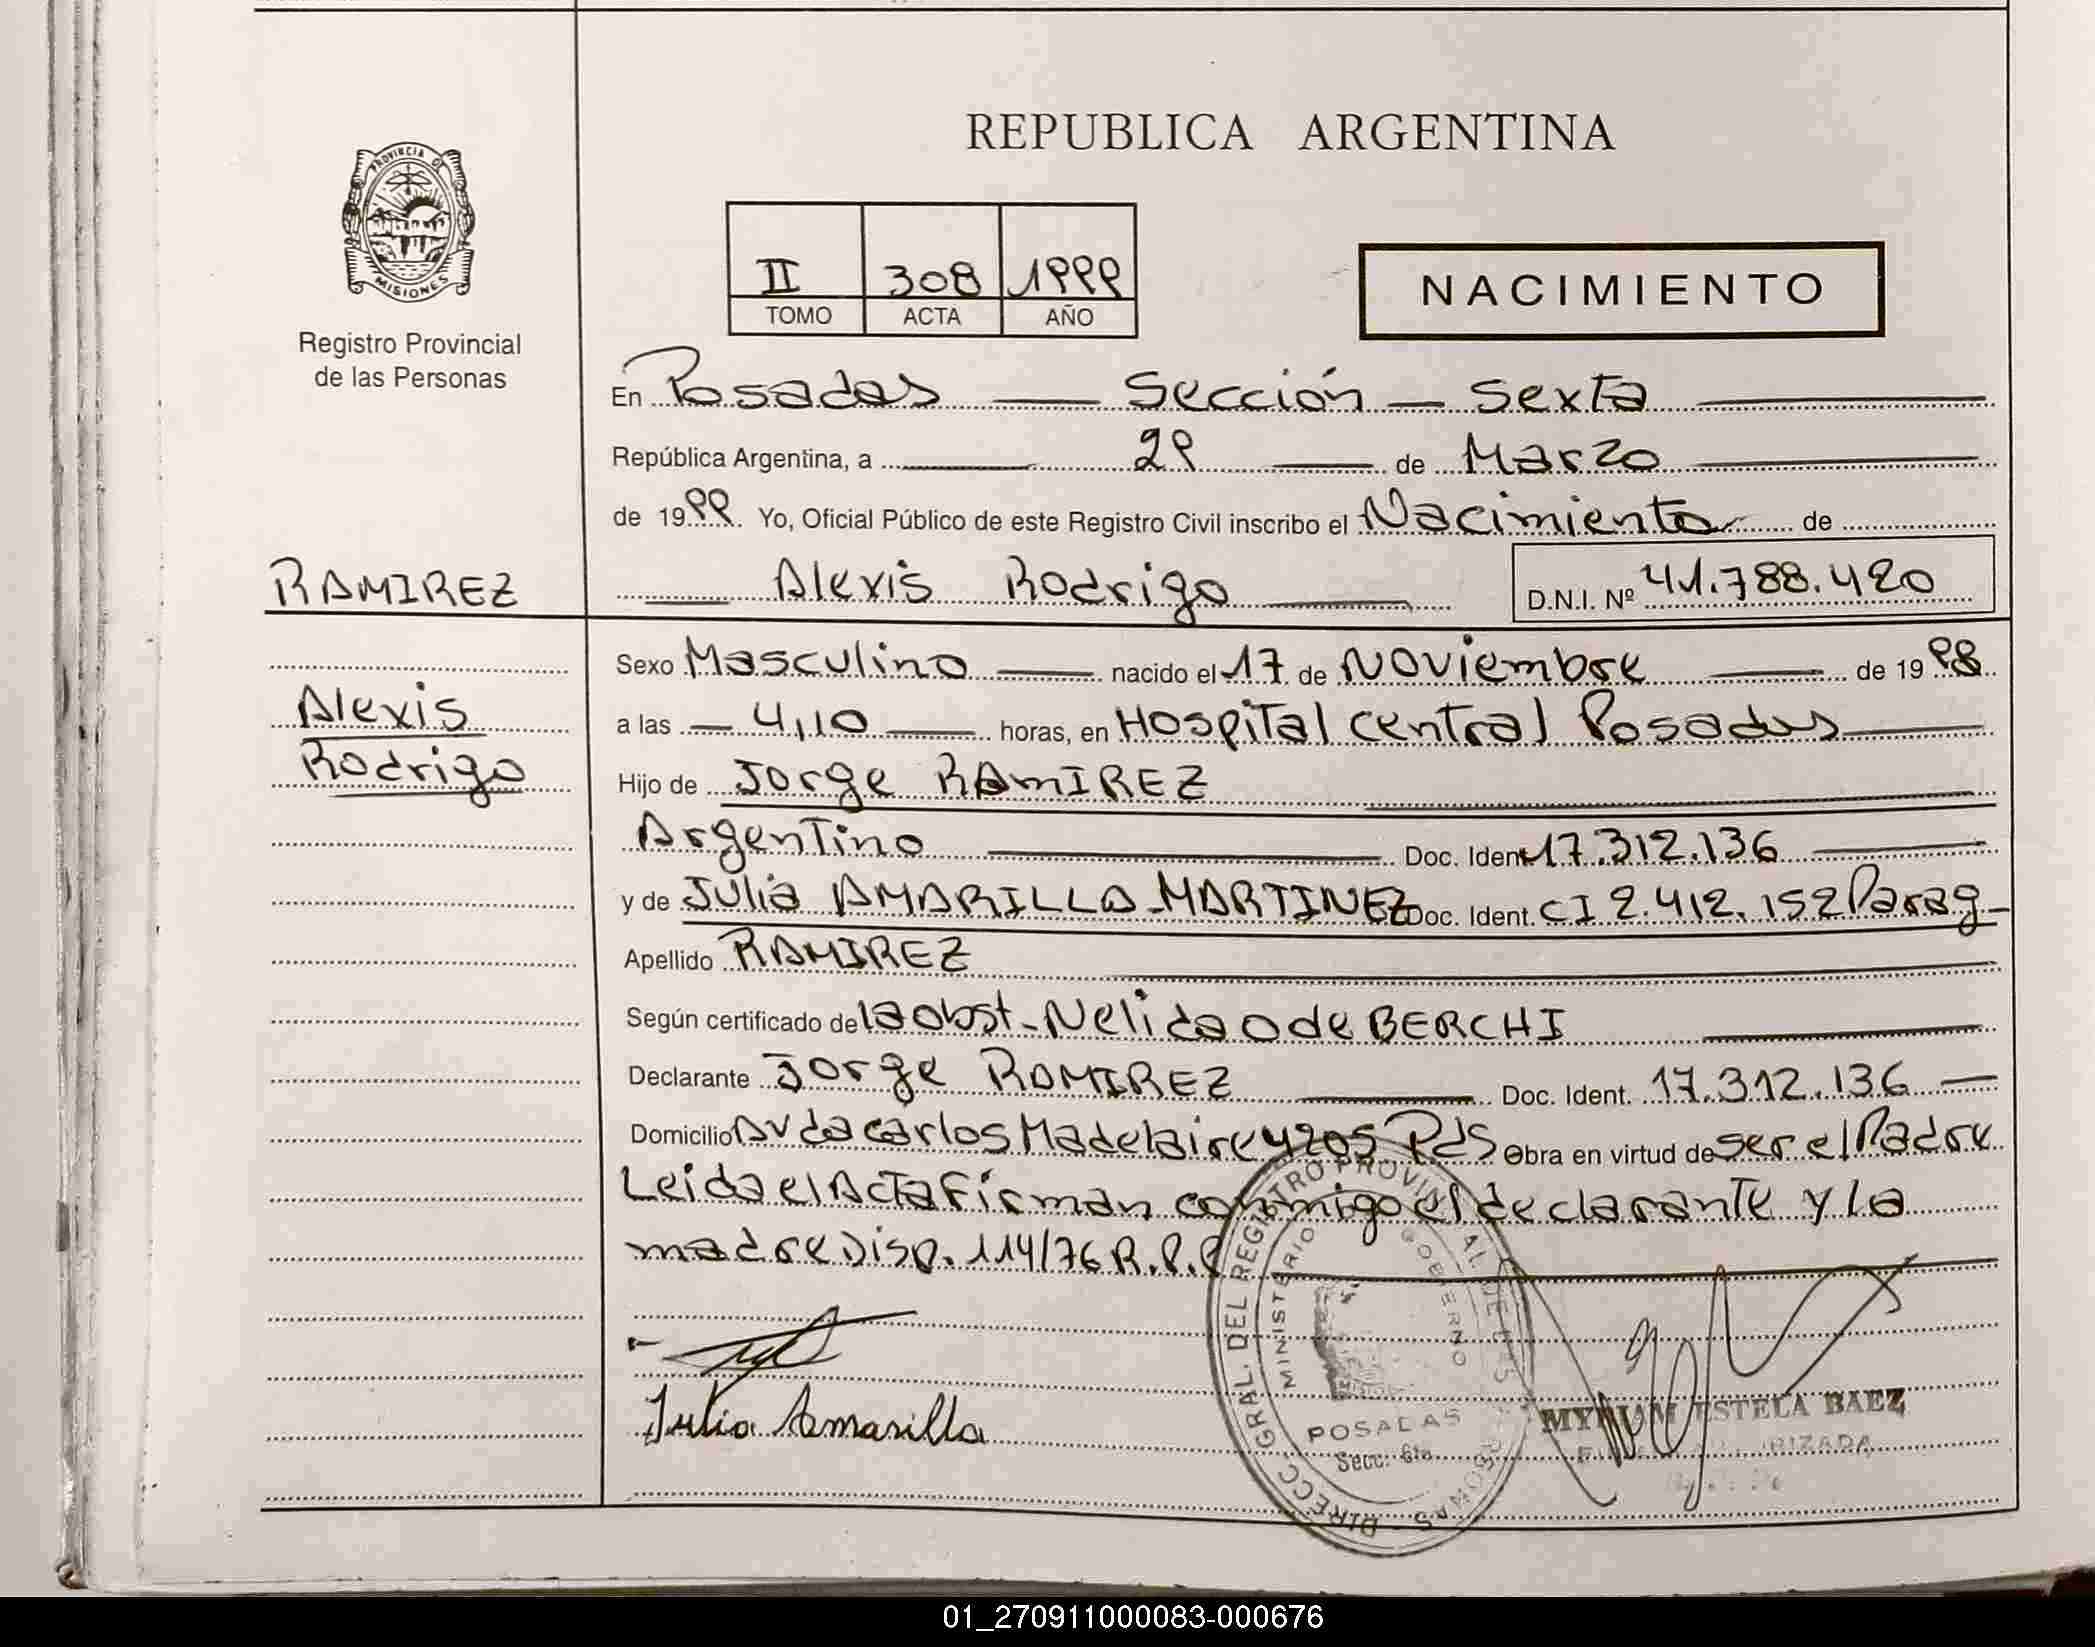 REPUBLICA ARGENTINA
PROVINCIA DE
MISIONES
Registro Provincial
de las Personas
II 308 1999
TOMO ACTA AÑO
NACIMIENTO
En Posadas — Sección — Sexta
República Argentina, a 29 de Marzo
de 1999. Yo, Oficial Público de este Registro Civil inscribo el Nacimiento de
RAMIREZ
Alexis Rodrigo
D.N.I. Nº 41.788.420
Alexis
Rodrigo
Sexo Masculino nacido el 17 de Noviembre de 1998
a las — 4,10 — horas, en Hospital Central Posadas
Hijo de Jorge RAMIREZ
Argentino Doc. Ident. 17.312.136
y de Julia AMARILLA MARTINEZ Doc. Ident. CI 2.412.152 Parag
Apellido RAMIREZ
Según certificado de la obst. Nelida O de BERCHI
Declarante Jorge RAMIREZ Doc. Ident. 17.312.136
Domicilio Avda Carlos Madelaire 4205 Pds Obra en virtud de ser el Padre
Leida el Acta Firman conmigo el declarante y la
madre Disp. 114/76 R.P.P
Julia Amarilla
DIRECC. GRAL. DEL REGISTRO PROVINCIAL DE LAS PERSONAS
MINISTERIO GOBIERNO
POSADAS
Secc: 6ta
MYRIAM ESTELA BAEZ
01_270911000083-000676